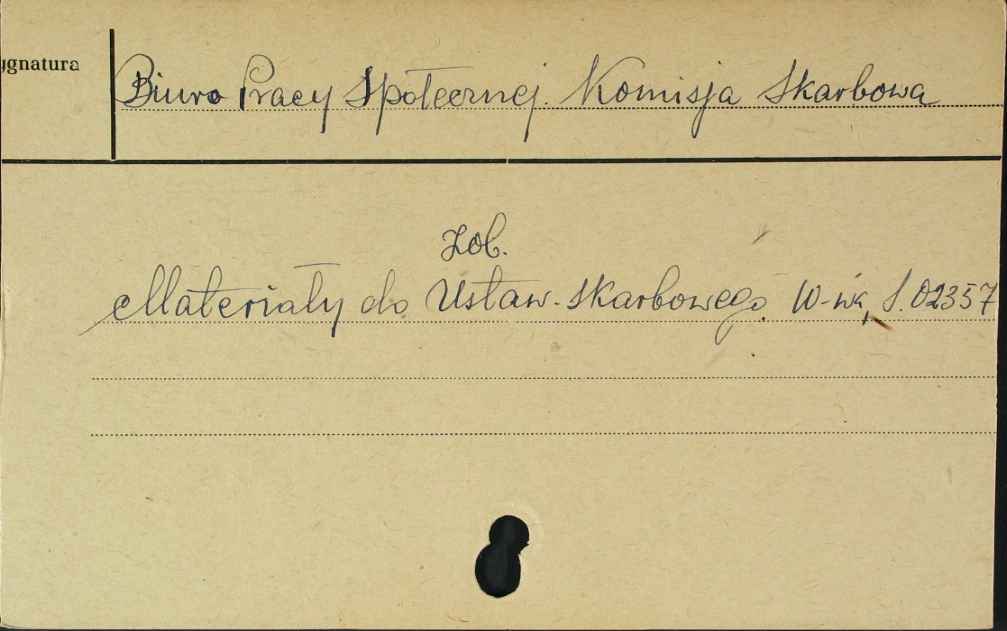 ygnatura
Biuro Pracy Społecznej. Komisja Skarbowa
zob.
Materiały do Ustaw. skarbowego. W-wa, S. 02357